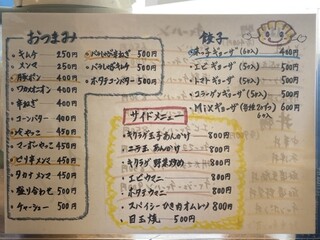 おつまみ
・キムチ 250円
・メンマ 250円
・豚ポン 400円
・ワカメオニオン 400円
・辛ねぎ 400円
・コーンバター 400円
400円
・マーボーやっこ 450円
・ピリ辛メンマ 450円
・タカナメンマ 450円
・盛り合わせ 500円
・チャーシュー 500円
500円
・バラしゃきキムチ 500円
・ホタテコーンバター 500円
餃子
ギョーザ(6コ入) 400円
・エビギョーザ(5コ入) 500円
・トマトギョーザ(5コ入) 500円
・コラーゲンギョーザ(5コ入) 500円
・Mixギョーザ(各種2ヶづつ) 600円
6コ入
サイドメニュー
・キクラゲ玉子あんかけ 800円
・ニラ玉あんかけ 800円
・キクラゲ野菜炒め 800円
・エビウマニ 800円
・ホタテウマニ 800円
・スパイシーひき肉オムレツ 800円
・目玉焼 500円